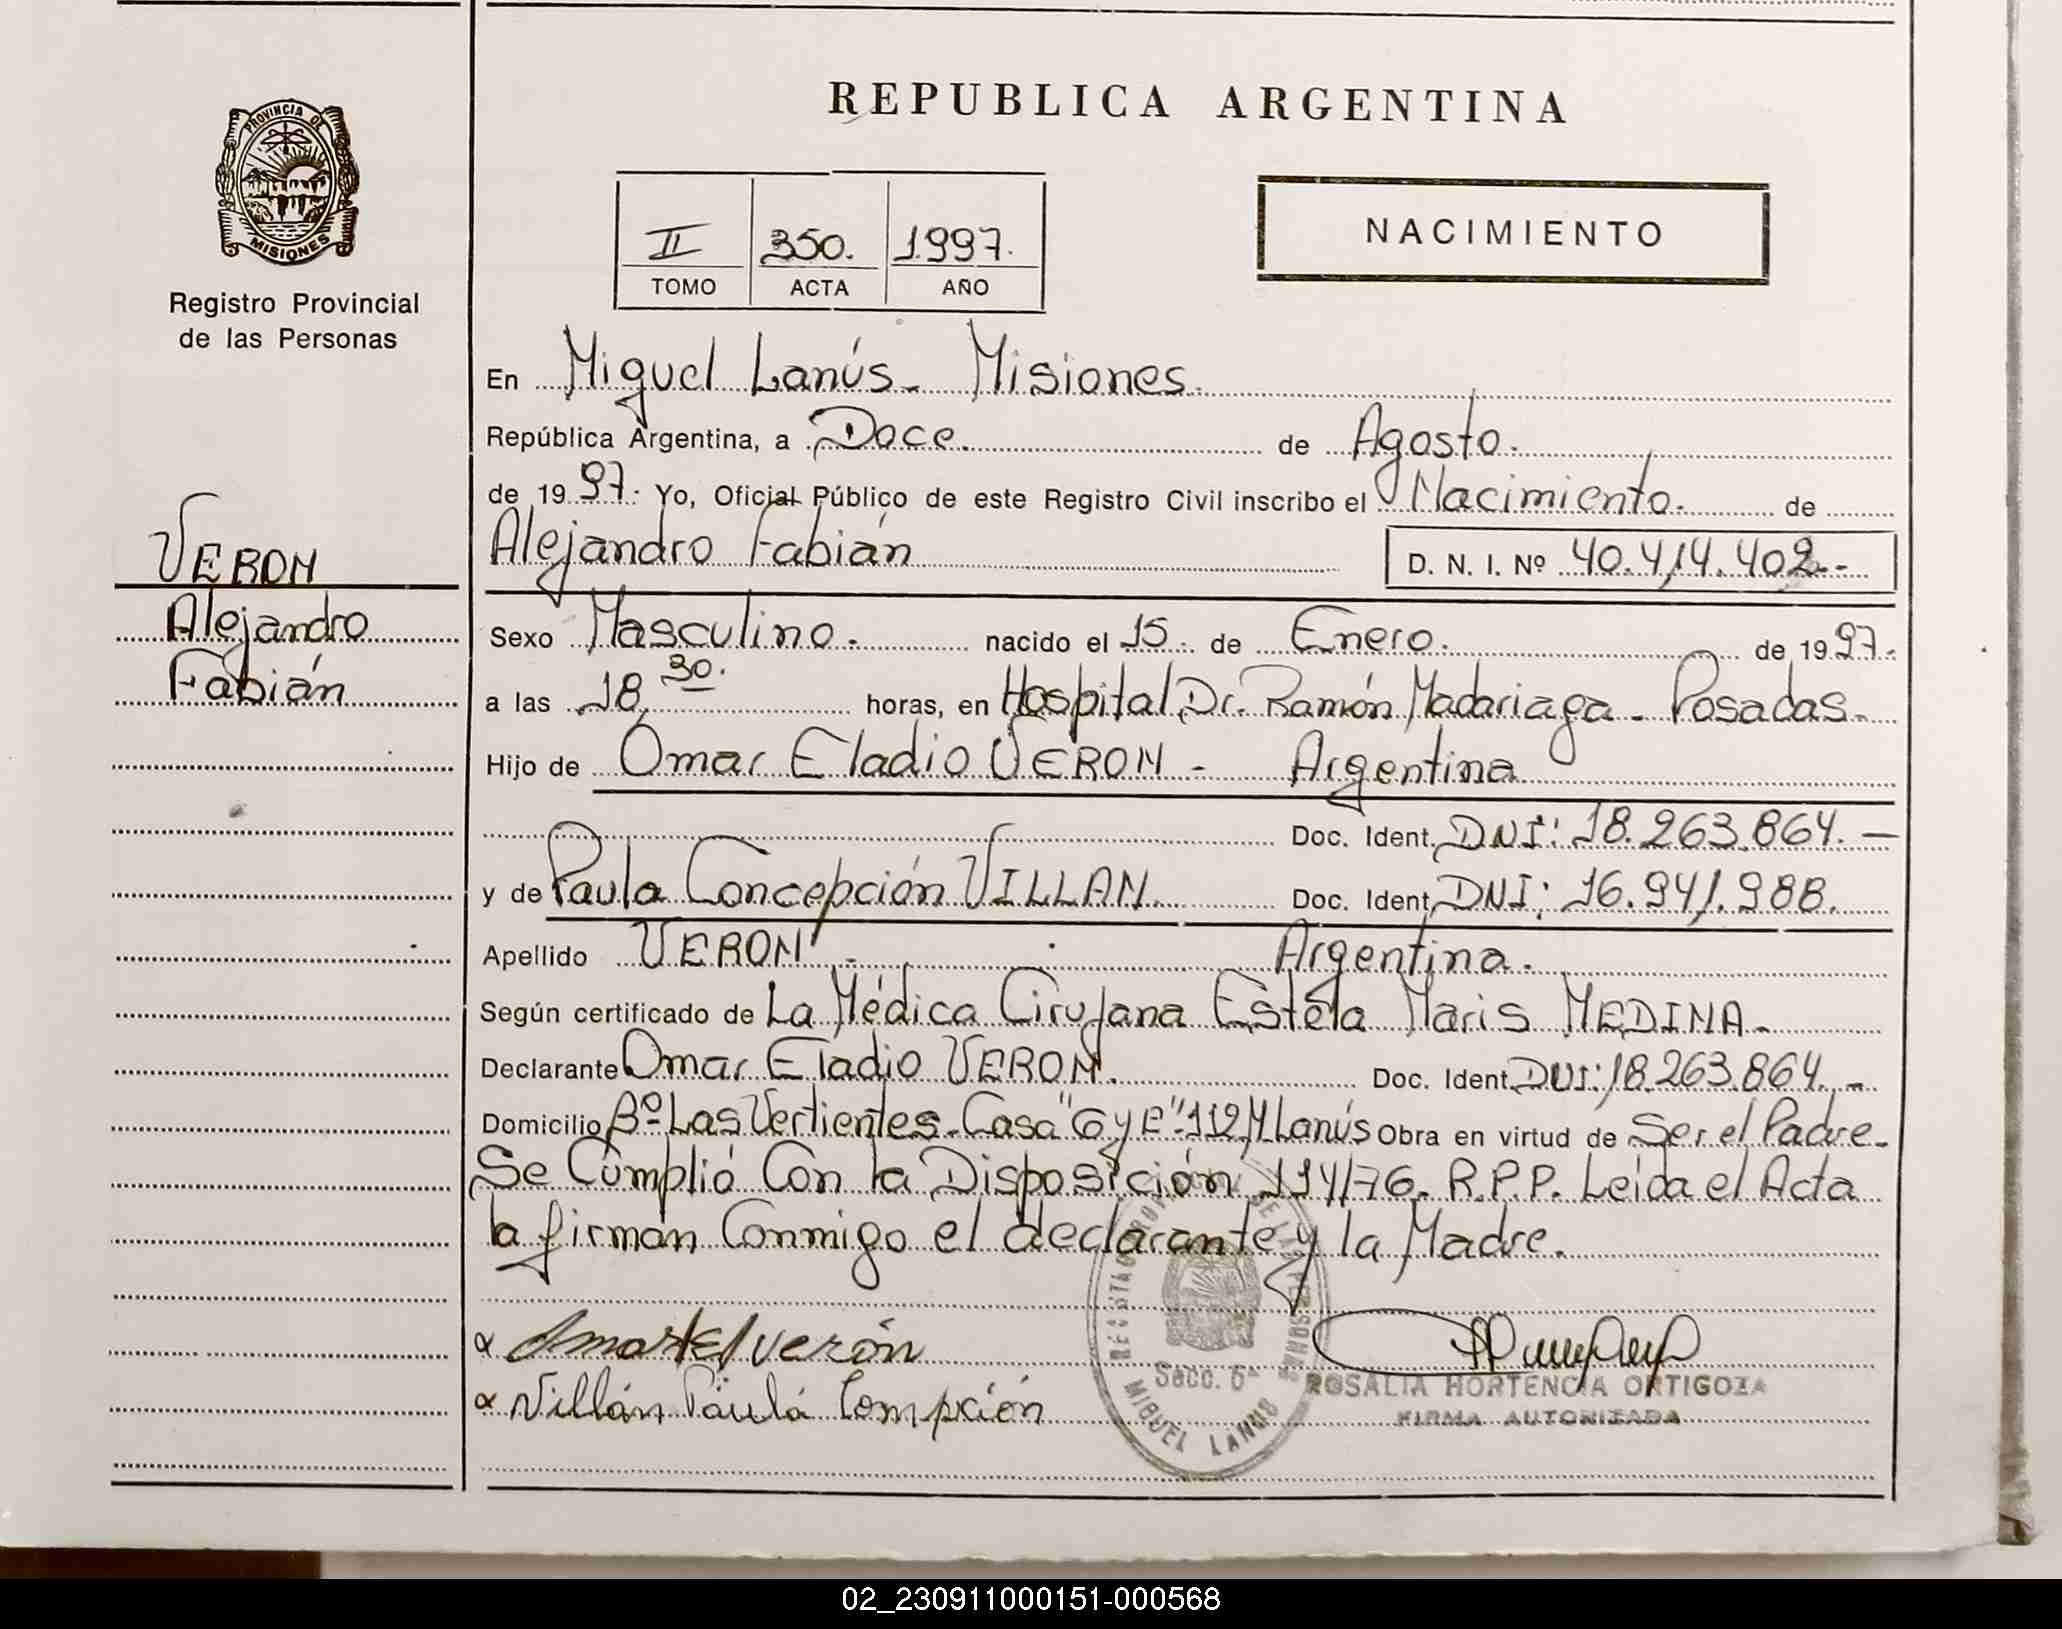 REPUBLICA ARGENTINA
PROVINCIA DE
MISIONES
Registro Provincial
de las Personas
II 350. 1997.
TOMO ACTA AÑO
NACIMIENTO
En Miguel Lanús - Misiones.
República Argentina, a Doce. de Agosto.
de 1997. Yo, Oficial Público de este Registro Civil inscribo el Nacimiento. de
Alejandro Fabián D. N. I. Nº 40.414.402.-
VERON
Alejandro
Fabián
Sexo Masculino. nacido el 15. de Enero. de 1997.
a las 18,30. horas, en Hospital Dr. Ramón Madariaga - Posadas.
Hijo de Omar Eladio VERON - Argentina
Doc. Ident. DNI: 18.263.864.-
y de Paula Concepción VILLAN. Doc. Ident. DNI: 16.941.988.
Apellido VERON - Argentina.
Según certificado de La Médica Cirujana Estela Maris MEDINA-
Declarante Omar Eladio VERON. Doc. Ident. DNI: 18.263.864.-
Domicilio Bº Las Vertientes - Casa 112 M. Lanús Obra en virtud de Ser el Padre-
Se Cumplió Con la Disposición 114/76. R.P.P. Leida el Acta
la firman Conmigo el declarante y la Madre.
Omar El verón
Villán Paula
REGISTRO PROVINCIAL DE LAS PERSONAS
Secc. 6ª
MIGUEL LANUS
ROSALIA HORTENCIA ORTIGOZA
FIRMA AUTORIZADA
02_230911000151-000568